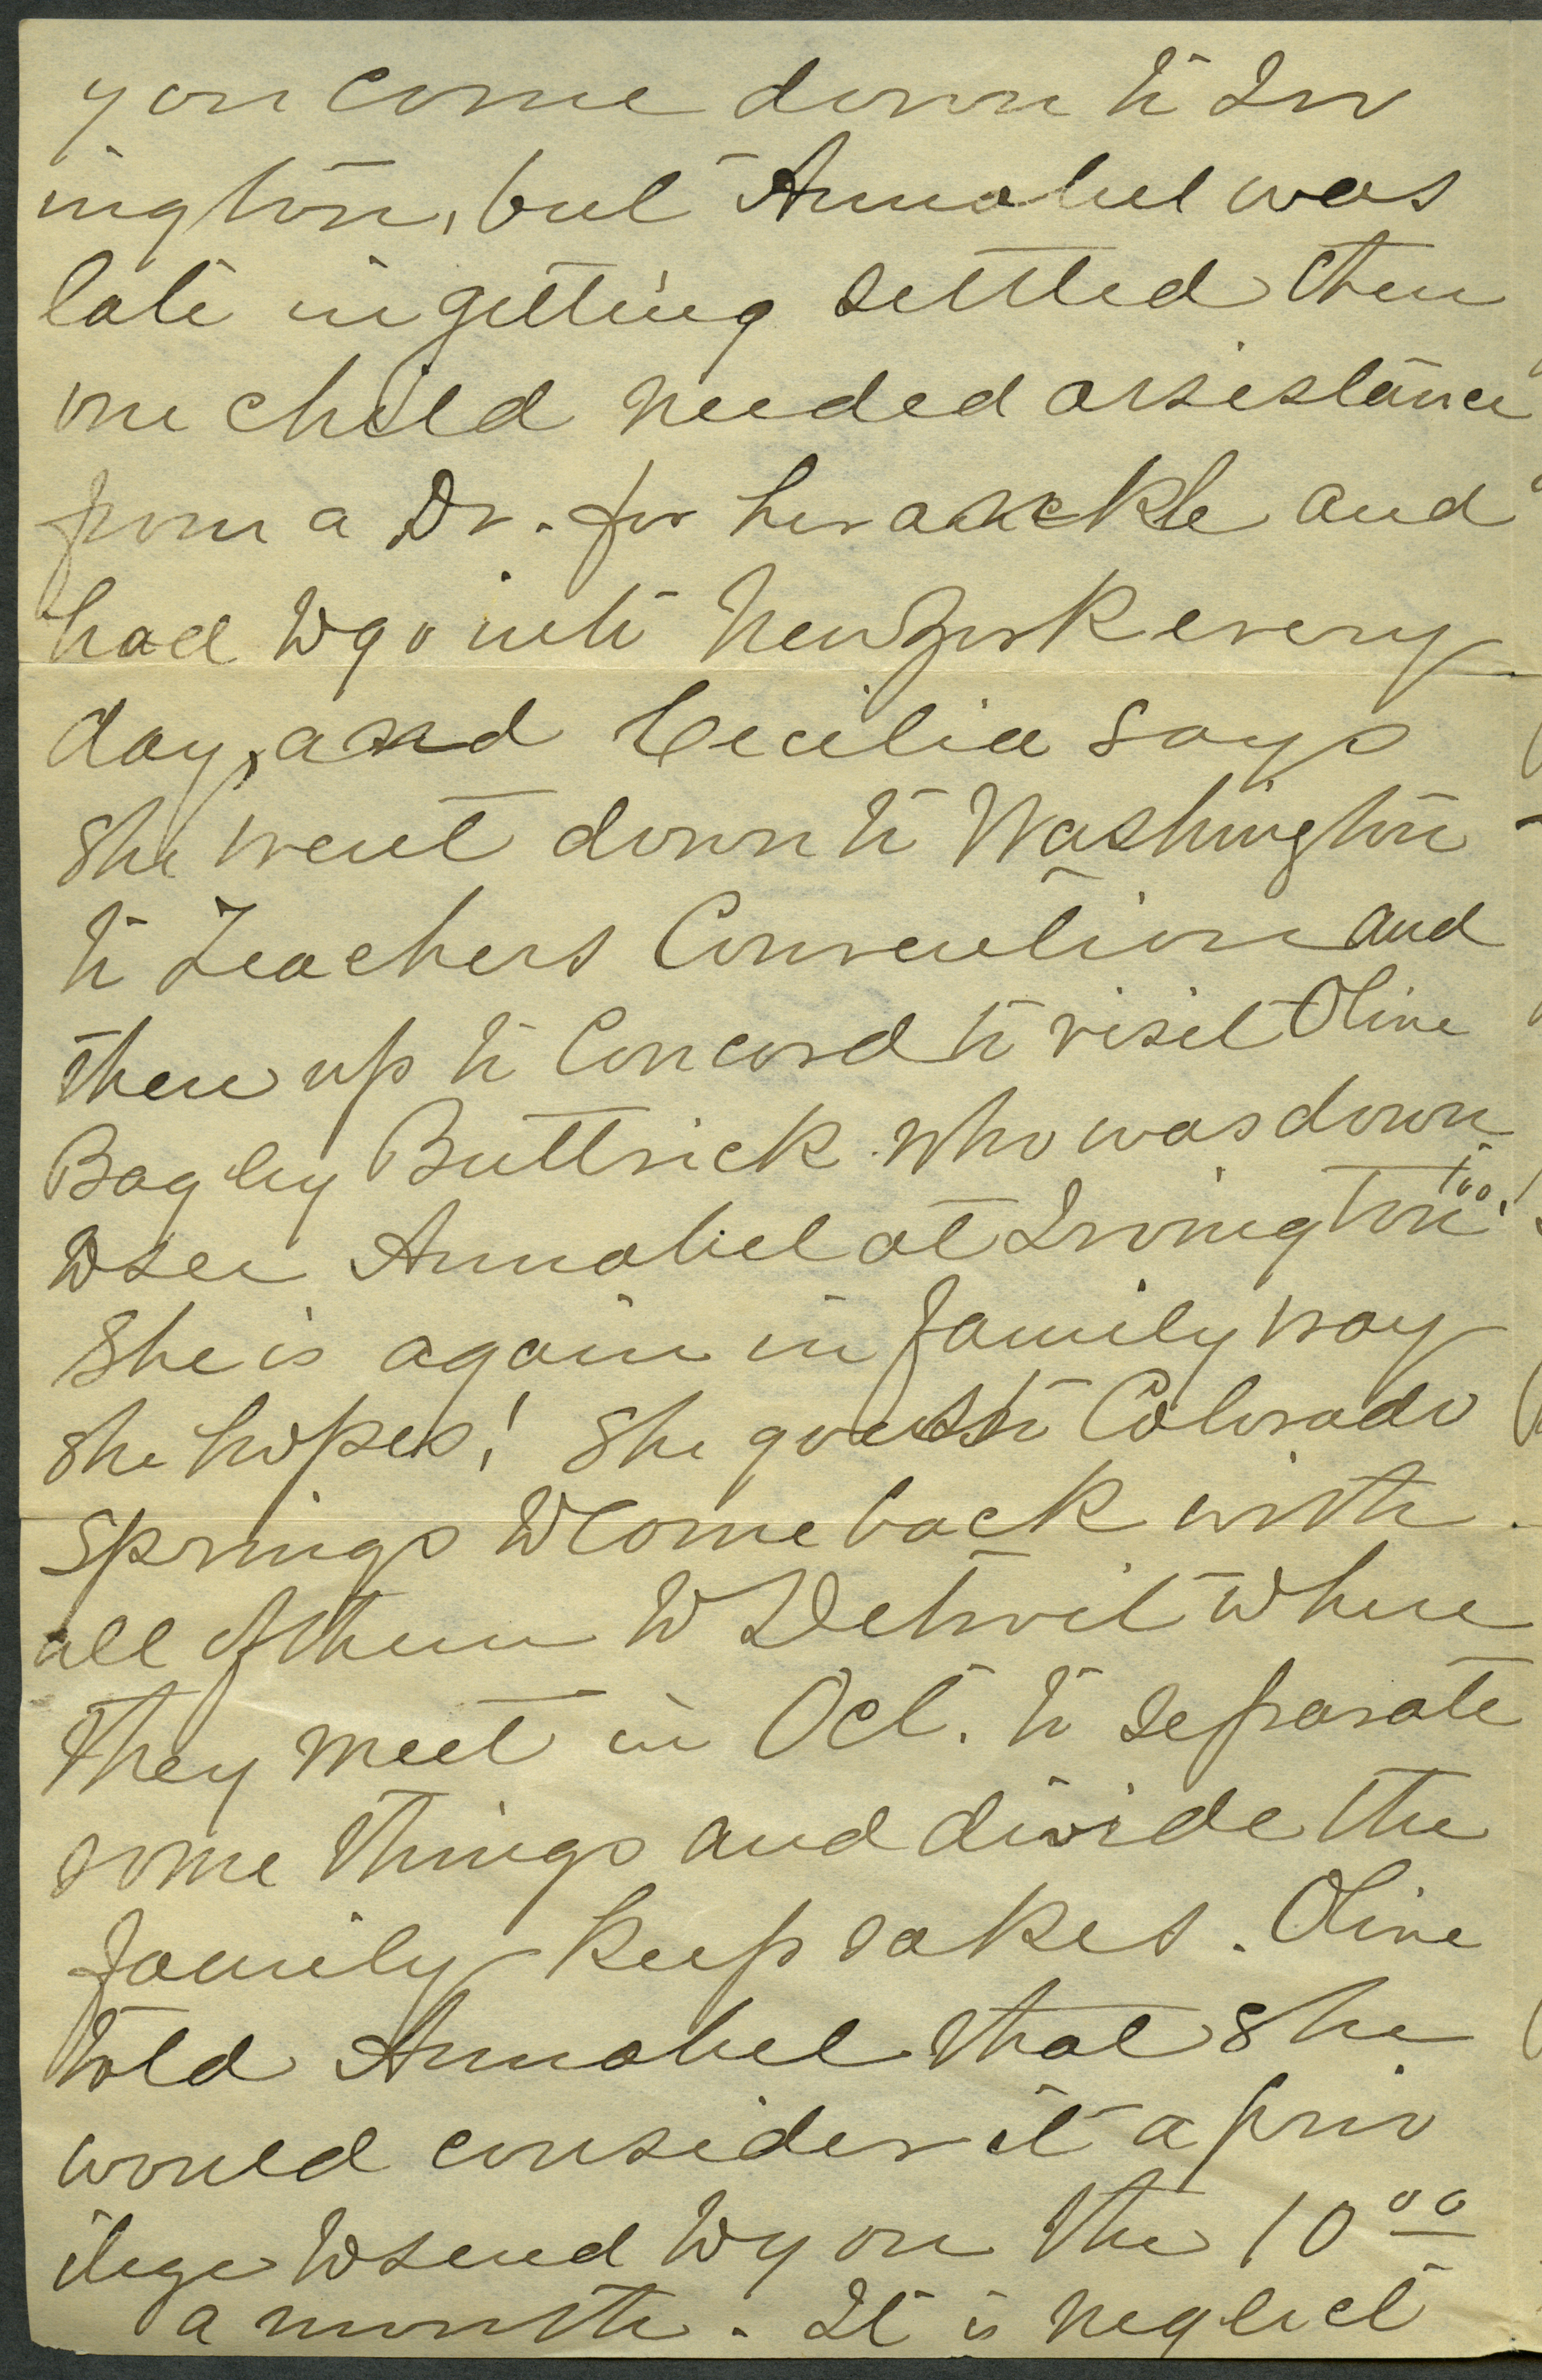 you come down to Irv
ington, but Annabel was
late in getting settled then
one child needed assistance
from a Dr. for her ankle and
had to go into New York every
day, and Cecilia says
she went down to Washington
to Teachers Convention and
then up to Concord to visit Olive
Bagley Buttrick who was down
to see Annabel at Irvington too!
She is again in family way
she hopes! She goes to Colorado
Springs to come back with
all of them to Detroit where
they meet in Oct. to separate
some things and divide the
family keep sakes. Olive
told Annabel that she
would consider it a priv
ilege to send to you the 10⁰⁰
a month. It is neglect